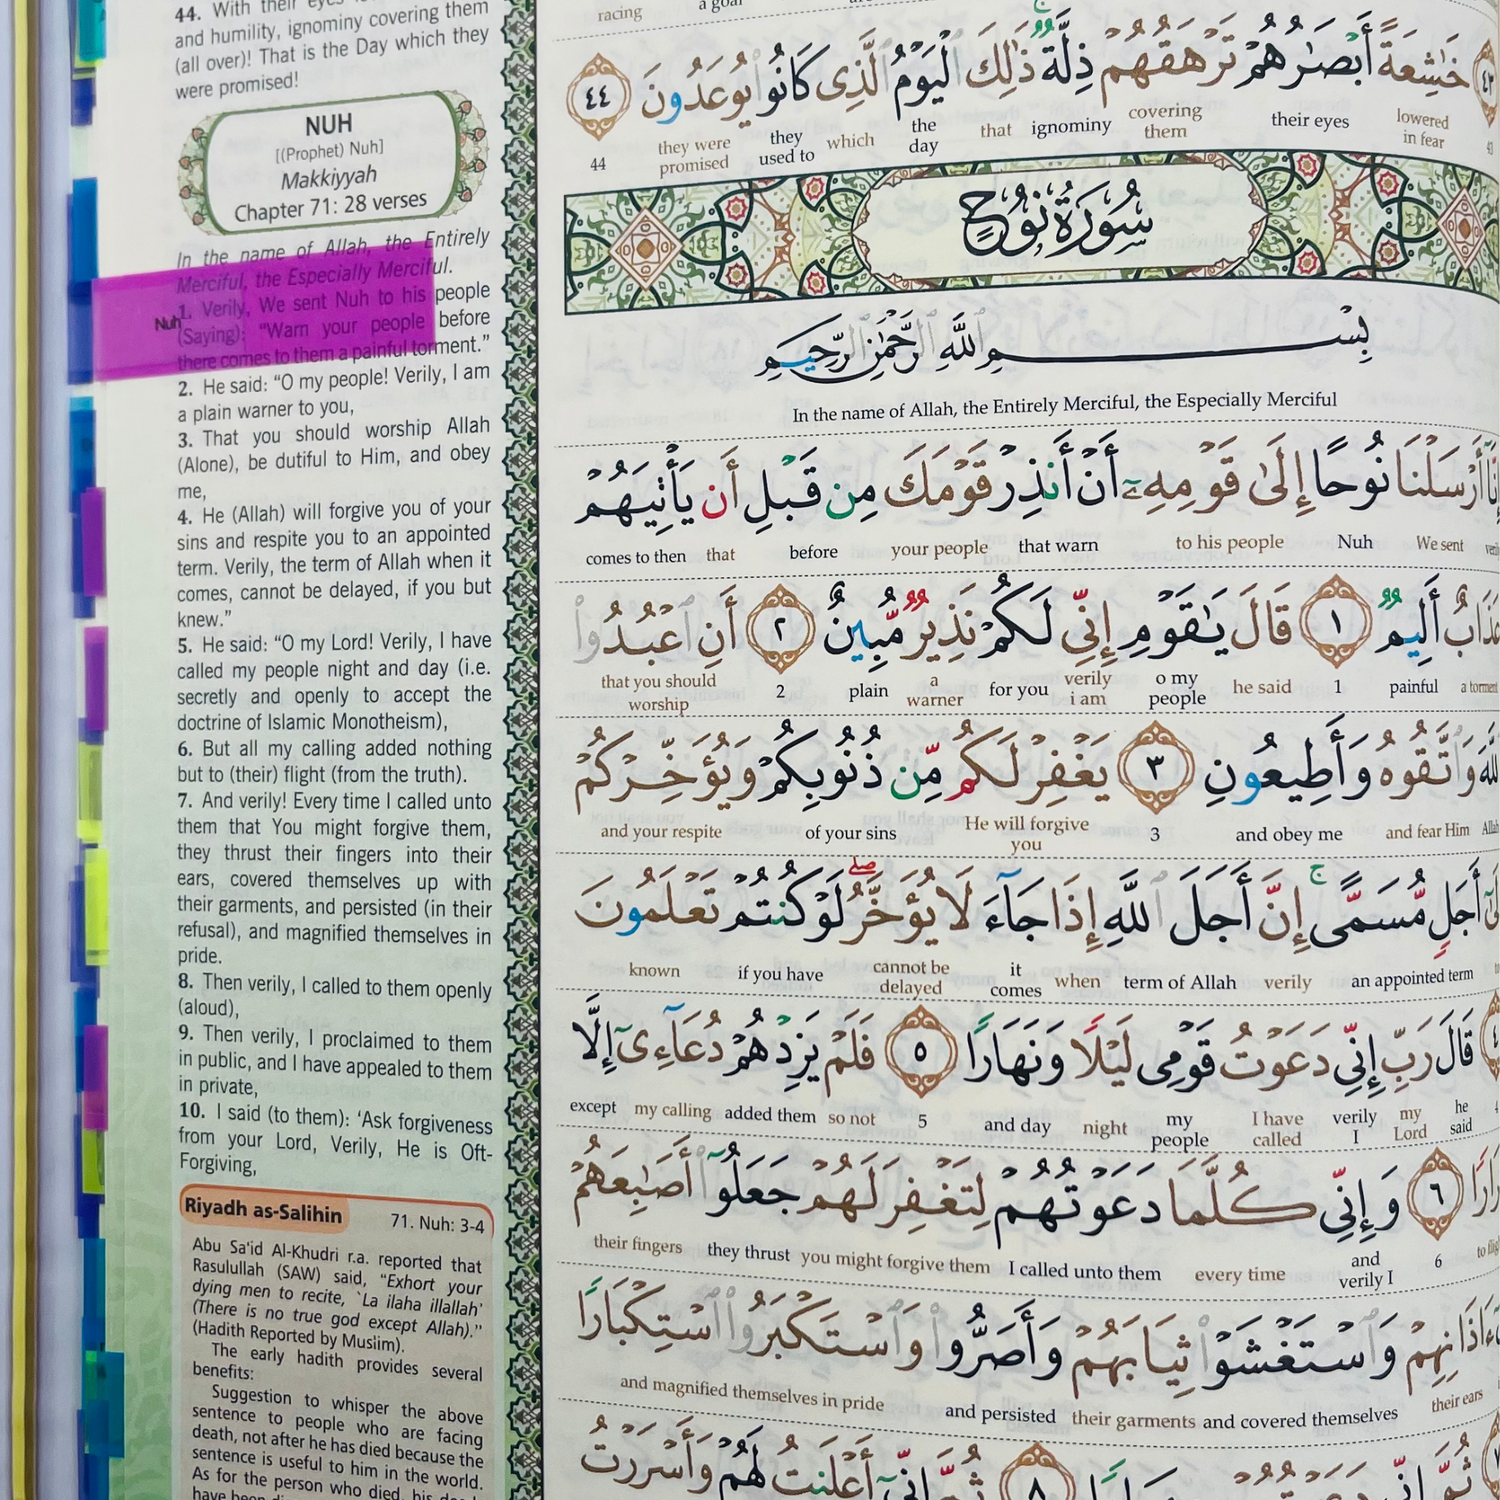 44. With their eyes
and humility, ignominy covering them
(all over)! That is the Day which they
were promised!
NUH
[(Prophet) Nuh]
Makkiyyah
Chapter 71: 28 verses
In the name of Allah, the Entirely
Merciful, the Especially Merciful.
1. Verily, We sent Nuh to his people
Nuh
(Saying): “Warn your people before
there comes to them a painful torment.”
2. He said: “O my people! Verily, I am
a plain warner to you,
3. That you should worship Allah
(Alone), be dutiful to Him, and obey
me,
4. He (Allah) will forgive you of your
sins and respite you to an appointed
term. Verily, the term of Allah when it
comes, cannot be delayed, if you but
knew.”
5. He said: “O my Lord! Verily, I have
called my people night and day (i.e.
secretly and openly to accept the
doctrine of Islamic Monotheism),
6. But all my calling added nothing
but to (their) flight (from the truth).
7. And verily! Every time I called unto
them that You might forgive them,
they thrust their fingers into their
ears, covered themselves up with
their garments, and persisted (in their
refusal), and magnified themselves in
pride.
8. Then verily, I called to them openly
(aloud),
9. Then verily, I proclaimed to them
in public, and I have appealed to them
in private,
10. I said (to them): ‘Ask forgiveness
from your Lord, Verily, He is Oft-
Forgiving,
Riyadh as-Salihin 71. Nuh: 3-4
Abu Sa‘id Al-Khudri r.a. reported that
Rasulullah (SAW) said, “Exhort your
dying men to recite, `La ilaha illallah'
(There is no true god except Allah).”
(Hadith Reported by Muslim).
The early hadith provides several
benefits:
Suggestion to whisper the above
sentence to people who are facing
death, not after he has died because the
sentence is useful to him in the world.
As for the person who died, his
have been
racing a goal
خَٰشِعَةً أَبْصَٰرُهُمْ تَرْهَقُهُمْ ذِلَّةٌ ۚ ذَٰلِكَ ٱلْيَوْمُ ٱلَّذِى كَانُوا۟ يُوعَدُونَ ٤٤
lowered in fear their eyes covering them ignominy that the day which they used to they were promised 44
سُورَةُ نُوحٍ
بِسْمِ ٱللَّهِ ٱلرَّحْمَٰنِ ٱلرَّحِيمِ
In the name of Allah, the Entirely Merciful, the Especially Merciful
إِنَّآ أَرْسَلْنَا نُوحًا إِلَىٰ قَوْمِهِۦٓ أَنْ أَنذِرْ قَوْمَكَ مِن قَبْلِ أَن يَأْتِيَهُمْ
We sent Nuh to his people that warn your people before that comes to then
عَذَابٌ أَلِيمٌ ١ قَالَ يَٰقَوْمِ إِنِّى لَكُمْ نَذِيرٌ مُّبِينٌ ٢ أَنِ ٱعْبُدُوا۟
a torment painful 1 he said o my people verily i am for you a warner plain 2 that you should worship
ٱللَّهَ وَٱتَّقُوهُ وَأَطِيعُونِ ٣ يَغْفِرْ لَكُم مِّن ذُنُوبِكُمْ وَيُؤَخِّرْكُمْ
and fear Him and obey me 3 He will forgive you of your sins and your respite
أَجَلٍ مُّسَمًّى ۚ إِنَّ أَجَلَ ٱللَّهِ إِذَا جَآءَ لَا يُؤَخَّرُ ۖ لَوْ كُنتُمْ تَعْلَمُونَ
an appointed term verily term of Allah when it comes cannot be delayed if you have known
قَالَ رَبِّ إِنِّى دَعَوْتُ قَوْمِى لَيْلًا وَنَهَارًا ٥ فَلَمْ يَزِدْهُمْ دُعَآءِىٓ إِلَّا
he said my Lord verily I I have called my people night and day 5 so not added them my calling except
٦ وَإِنِّى كُلَّمَا دَعَوْتُهُمْ لِتَغْفِرَ لَهُمْ جَعَلُوٓا۟ أَصَٰبِعَهُمْ
6 and verily I every time I called unto them you might forgive them they thrust their fingers
ءَاذَانِهِمْ وَٱسْتَغْشَوْا۟ ثِيَابَهُمْ وَأَصَرُّوا۟ وَٱسْتَكْبَرُوا۟ ٱسْتِكْبَارًا
their ears and covered themselves their garments and persisted and magnified themselves in pride
ثُمَّ إِنِّى ٨ ثُمَّ إِنِّىٓ أَعْلَنتُ لَهُمْ وَأَسْرَرْتُ